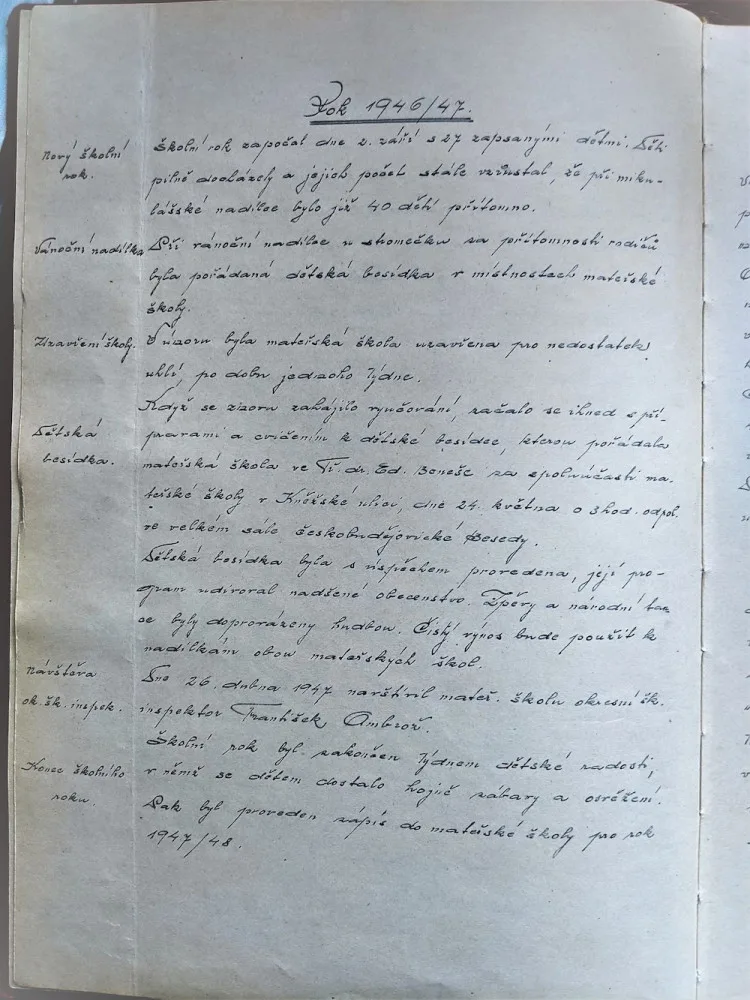 Rok 1946/47.
Nový školní
rok.
Školní rok započal dne 2. září s 27 zapsanými dětmi. Děti
pilně docházely a jejich počet stále vzrůstal, že při miku-
lášské nadílce bylo již 40 dětí přítomno.
Vánoční nadílka
Při vánoční nadílce u stromečku za přítomnosti rodičů
byla pořádaná dětská besídka v místnostech mateřské
školy.
Uzavření školy.
V únoru byla mateřská škola uzavřena pro nedostatek
uhlí, po dobu jednoho týdne.
Dětská
besídka.
Když se znovu zahájilo vyučování, začalo se ihned s pří-
pravami a cvičením k dětské besídce, kterou pořádala
mateřská škola ve Tř. dr. Ed. Beneše za spoluúčasti ma-
teřské školy v Kněžské ulici, dne 24. května o 3 hod. odpol.
ve velkém sále českobudějovické Besedy.
Dětská besídka byla s úspěchem provedena, její pro-
gram udivoval nadšené obecenstvo. Zpěvy a národní tan-
ce byly doprovázeny hudbou. Čistý výnos bude použit k
nadílkám obou mateřských škol.
Návštěva
ok. šk. inspek.
Dne 26. dubna 1947 navštívil mateř. školu okresní šk.
inspektor František Ambrož.
Konec školního
roku.
Školní rok byl zakončen Týdnem dětské radosti,
v němž se dětem dostalo hojně zábavy a osvěžení.
Pak byl proveden zápis do mateřské školy pro rok
1947/48.